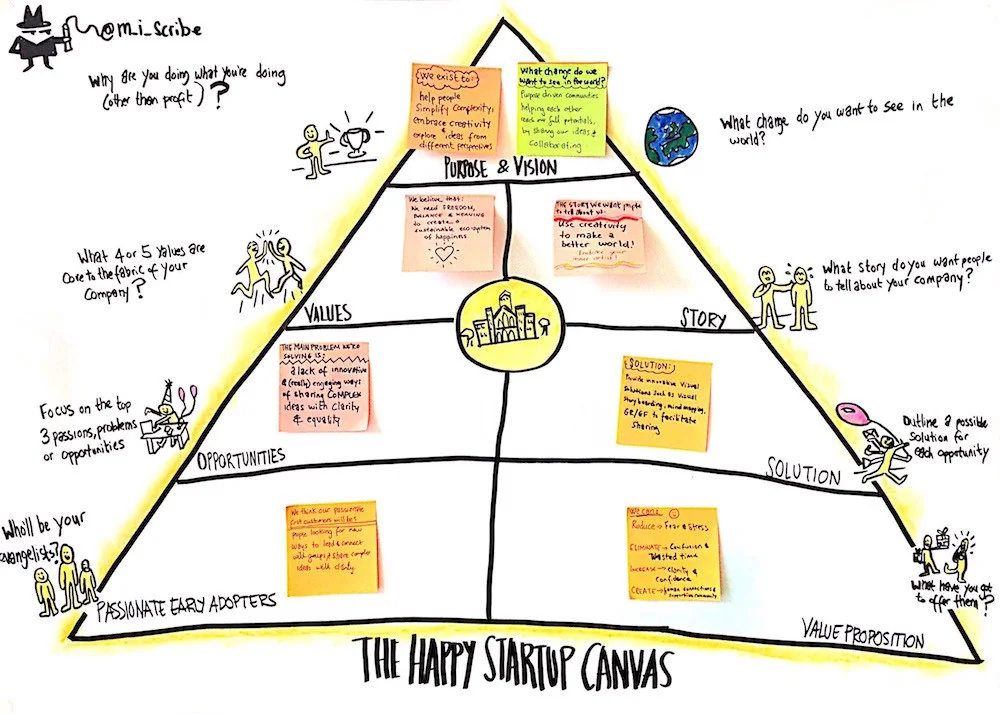 @m_i_scribe
Why are you doing what you're doing
(other than profit)?
We exist to:
help people
Simplify Complexity,
embrace creativity
& explore ideas from
different perspectives
What change do we
want to see in the world?
Purpose driven communities
helping each other
reach our full potentials,
by sharing our ideas &
collaborating
What change do you want to see in the
world?
PURPOSE & VISION
What 4 or 5 values are
core to the fabric of your
Company?
We believe that:
We need FREEDOM,
BALANCE & MEANING
to create a
sustainable ecosystem
of happiness
THE STORY WE WANT people
to tell about us:
Use creativity
to make a
better world!
What story do you want people
to tell about your company?
VALUES
STORY
Focus on the top
3 passions, problems
or opportunities
THE MAIN PROBLEM WE'RE
SOLVING IS:
a lack of innovative
& (really) engaging ways
of sharing COMPLEX
ideas with clarity
& equality
SOLUTION:
Provide innovative Visual
Solutions such as visual
Storyboarding, mind mapping,
GR/GF to facilitate
Sharing
Outline a possible
Solution for
each opportunity
OPPORTUNITIES
SOLUTION
Who'll be your
evangelists?
We think our passionate
first customers will be:
people looking for new
ways to lead & connect
with groups & share complex
ideas with clarity
We can:
Reduce → Fear & Stress
ELIMINATE → Confusion &
Wasted time
INCREASE → Clarity &
Confidence
CREATE → human connections &
supportive community
What have you got
to offer them?
PASSIONATE EARLY ADOPTERS
VALUE PROPOSITION
THE HAPPY STARTUP CANVAS